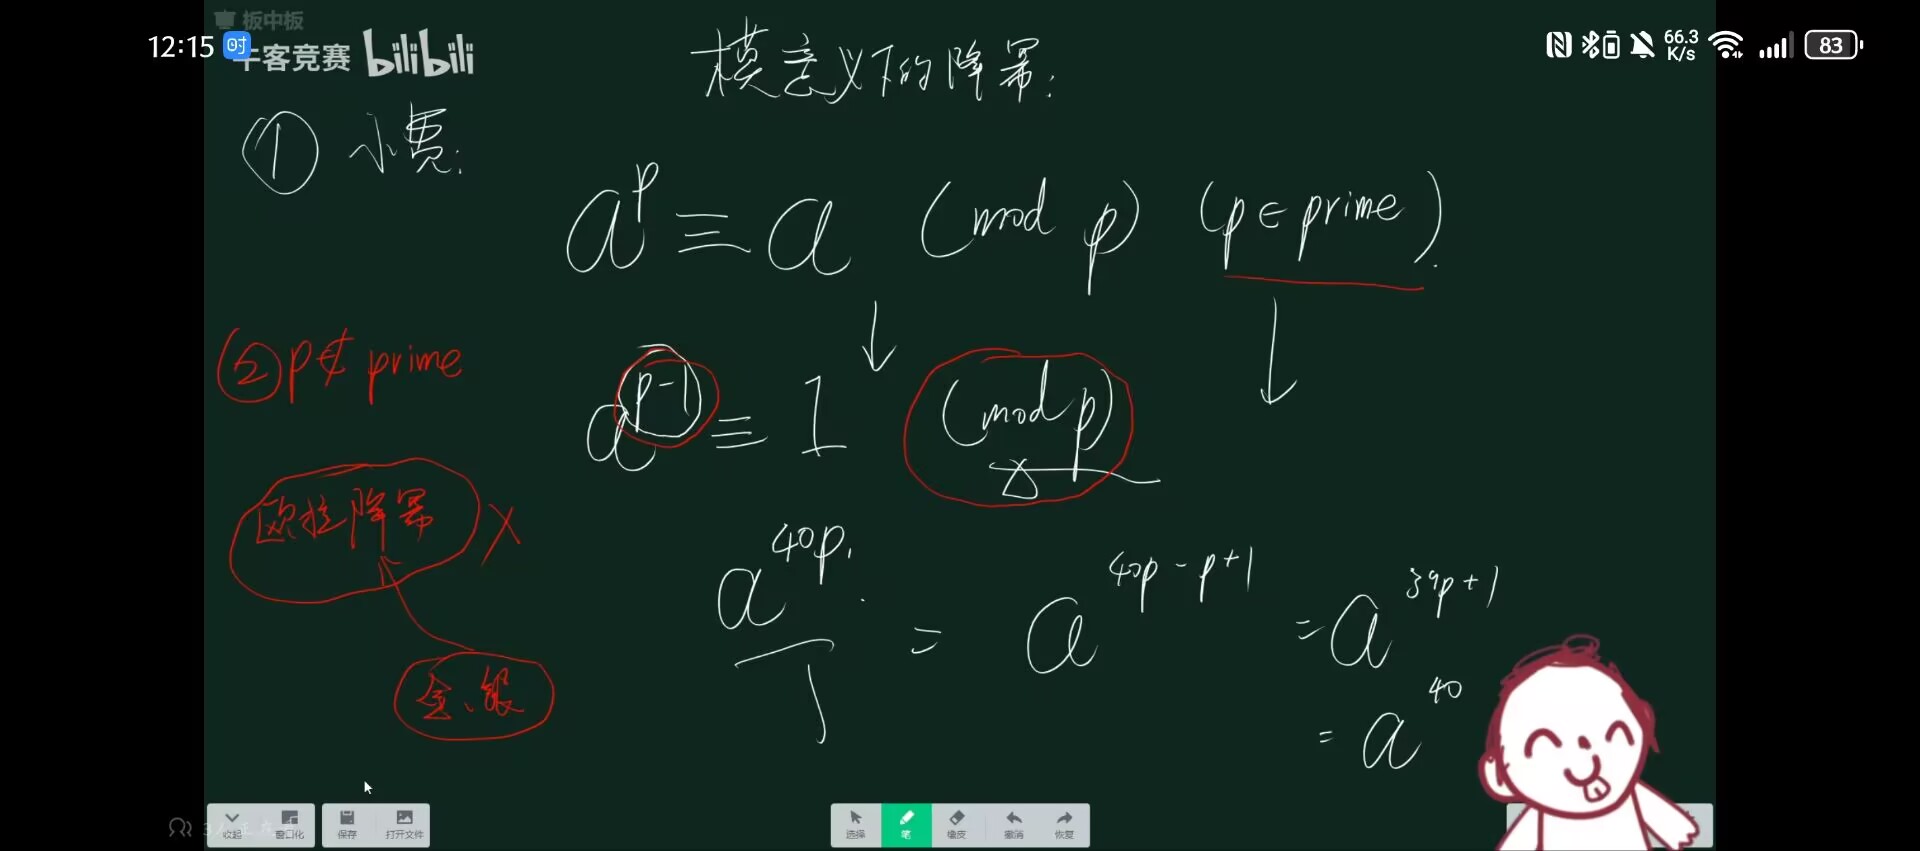 板中板
12:15
牛客竞赛 bilibili
66.3 K/s
83
模意义下的降幂:
① 小费:
a^p ≡ a (mod p) (p∈prime).
② p∉prime
a^(p-1) ≡ 1 (mod p)
欧拉降幂 ×
a^(40p) = a^(40p-p+1) = a^(39p+1)
= a^40
金、银
收起 窗口化 保存 打开文件 选择 笔 橡皮 撤消 恢复